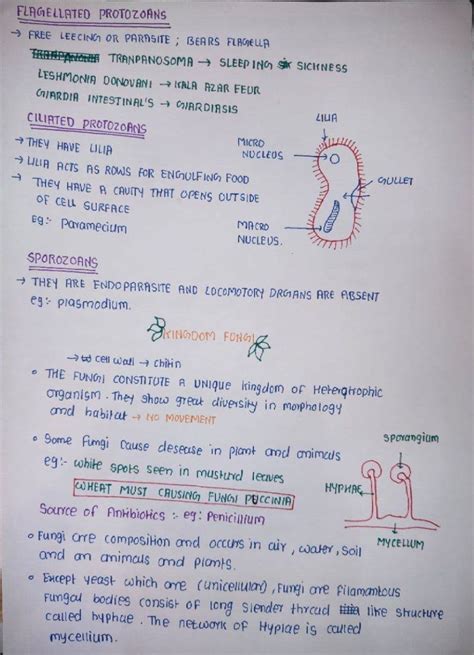 FLAGELLATED PROTOZOANS
→ FREE LEECING OR PARASITE ; BEARS FLAGELLA
TRANPANOSOMA → SLEEPING SICKNESS
LESHMONIA DONOVANI → KALA AZAR FEUR
GIARDIA INTESTINAL'S → GIARDIASIS
CILIATED PROTOZOANS
→ THEY HAVE LILIA
→ LILIA ACTS AS ROWS FOR ENGULFING FOOD
→ THEY HAVE A CAVITY THAT OPENS OUTSIDE
OF CELL SURFACE
eg:- Paramecium
LILIA
MICRO
NUCLEUS
GULLET
MACRO
NUCLEUS.
SPOROZOANS
→ THEY ARE ENDOPARASITE AND LOCOMOTORY ORGANS ARE ABSENT
eg:- plasmodium.
KINGDOM FUNGI
→ cell wall → chitin
• THE FUNGI CONSTITUTE A UNIQUE kingdom of Heterotrophic
organism. They show great diversity in morphology
and habitat → NO MOVEMENT
• Some fungi cause desease in plant and animals
eg:- white spots seen in musturd leaves
WHEAT MUST CAUSING FUNGI PUCCINIA
Source of Antibiotics :- eg: Penicillium
sporangium
HYPHAE
MYCELLUM
• Fungi are composition and occurs in air, water, soil
and on animals and plants.
• Except yeast which are (unicellular), Fungi are filamantous
Fungal bodies consist of long slender thread like structure
called hyphae. The network of Hyplae is called
mycellium.